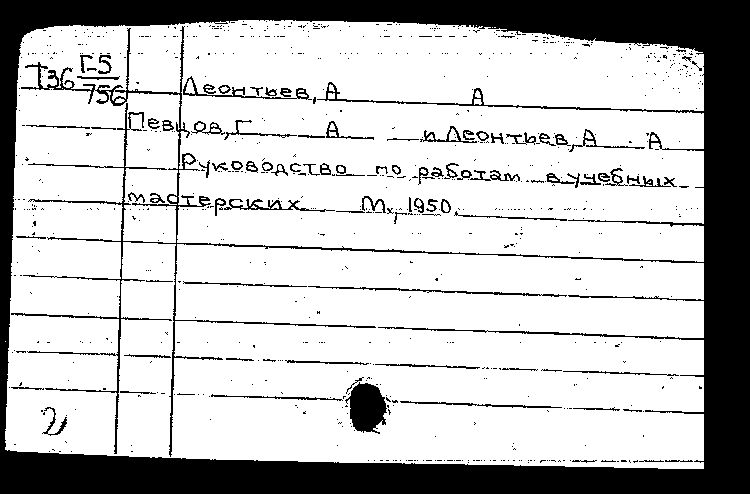 Т36 Г-5
756
Леонтьев, А А
Певцов, Г А и Леонтьев, А А
Руководство по работам в учебных
мастерских М., 1950.
2